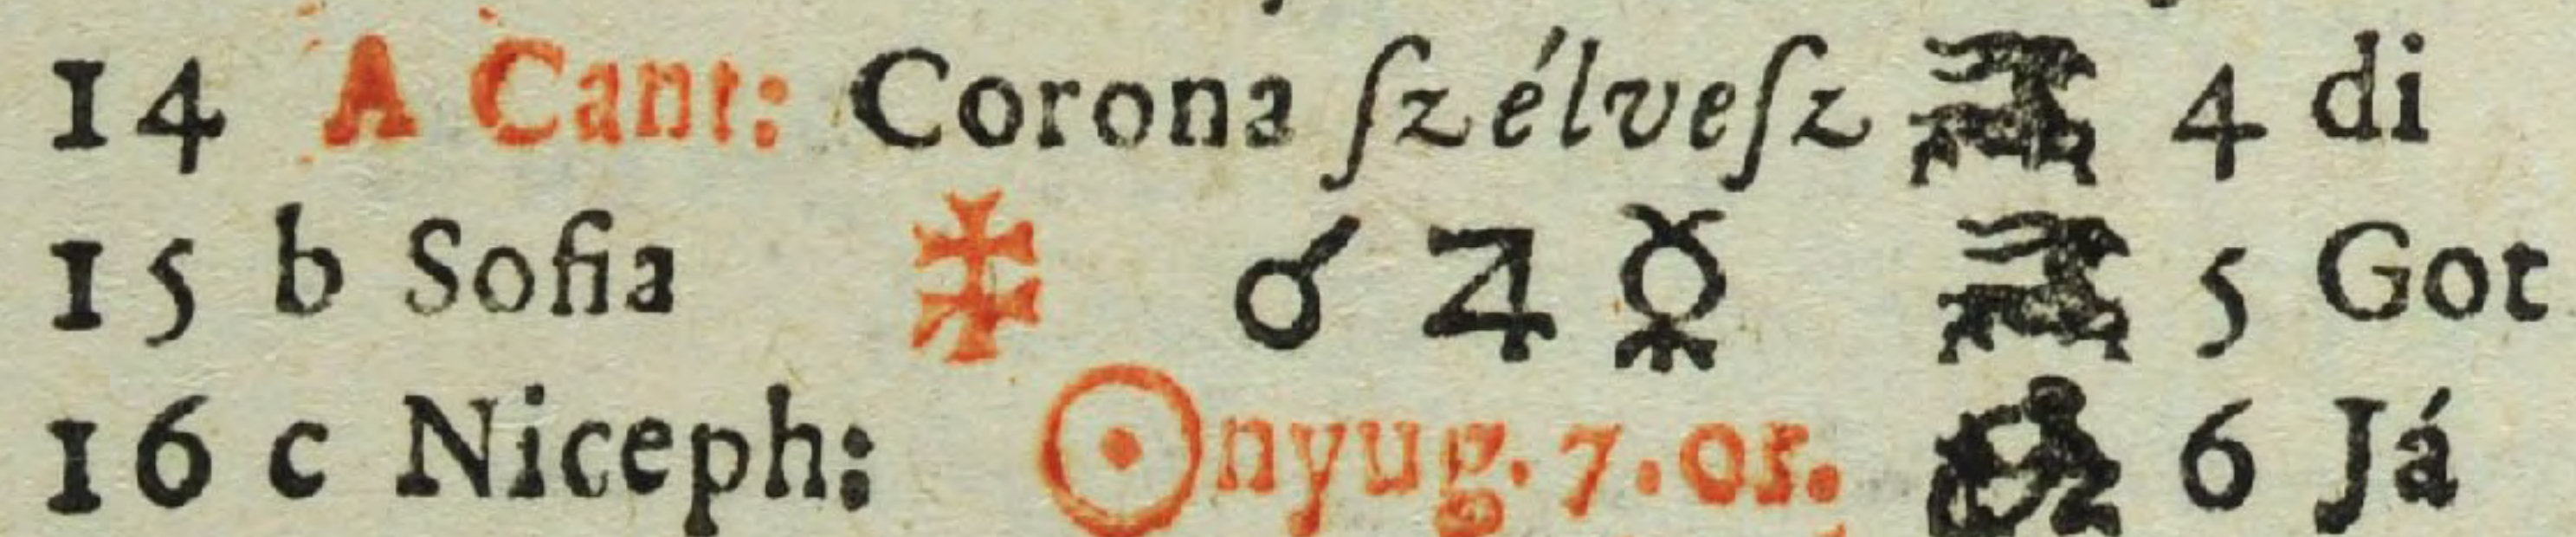 14 A Cant: Corona ſzélveſz ♑ 4 di
15 b Sofia ☌ ♃ ☿ ♑ 5 Got
16 c Niceph: ☉ nyug. 7. or. ♒ 6 Já